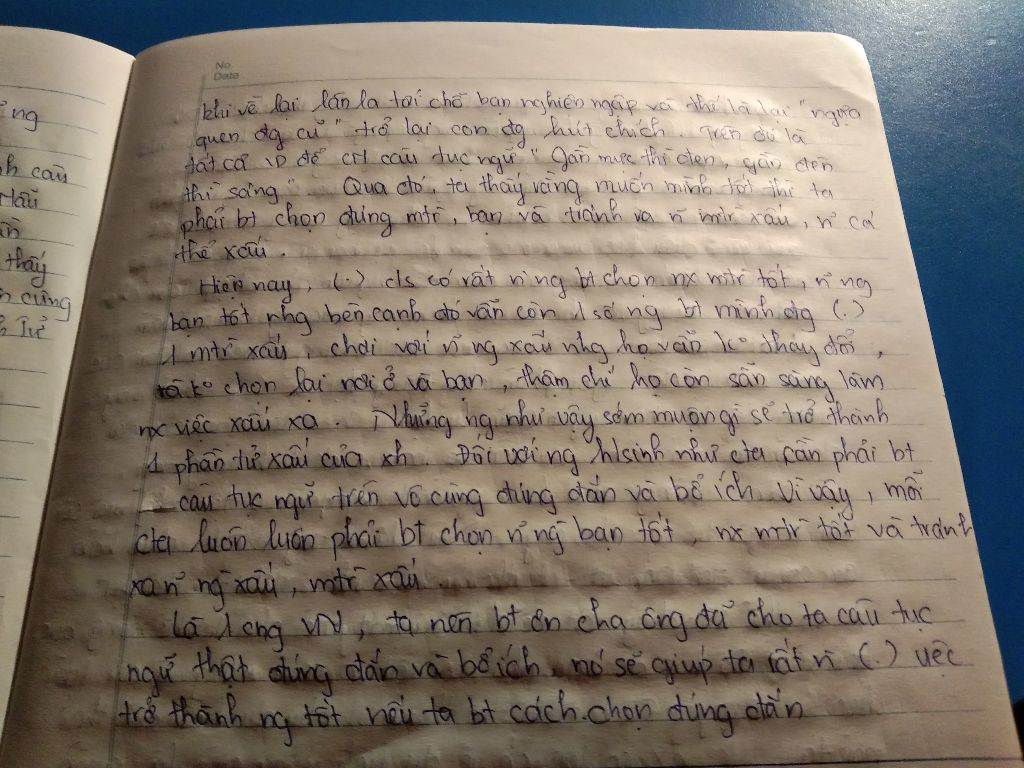 ng
h câu
thấy
cũng
Tử
No.
Date
khi về lại lân la tới chỗ bạn nghiện ngập và thế là lại "ngựa
quen đg cũ" trở lại con đg hút chích. Trên đó là
tất cả VD để CM câu tục ngữ "Gần mực thì đen, gần đèn
thì sáng". Qua đó, ta thấy rằng muốn mình tốt thì ta
phải bt chọn đúng mtr, bạn và tránh xa n~ mtr xấu, n~ cá
thể xấu.
Hiện nay, (.) c/s có rất n` ng bt chọn nx mtr tốt, n~ ng
bạn tốt nhg bên cạnh đó vẫn còn 1 số ng bt mình đg (.)
1 mtr xấu, chơi với n~ ng xấu nhg họ vẫn ko thay đổi,
ko chọn lại nơi ở và bạn, thậm chí họ còn sẵn sàng làm
nx việc xấu xa. Những ng như vậy sớm muộn gì sẽ trở thành
1 phần tử xấu của xh. Đối với ng h/sinh như cta cần phải bt
câu tục ngữ trên vô cùng đúng đắn và bổ ích. Vì vậy, mỗi
cta luôn luôn phải bt chọn n~ ng bạn tốt, nx mtr tốt và tránh
xa n~ ng xấu, mtr xấu.
Là 1 cng VN, ta nên bt ơn cha ông đã cho ta câu tục
ngữ thật đúng đắn và bổ ích, nó sẽ giúp ta rất n` (.) việc
trở thành ng tốt nếu ta bt cách chọn đúng đắn